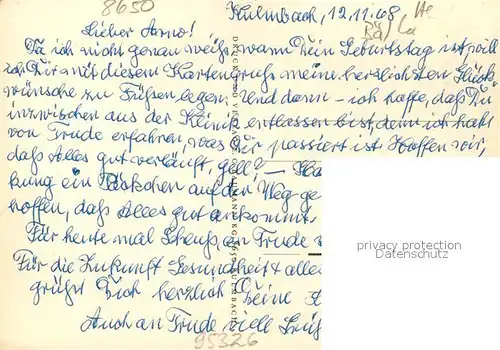 8650
Kulmbach, 12.11.68
Lieber Arno!
Da ich nicht genau weiß, wann Dein Geburtstag ist will
ich Dir mit diesem Kartengruß meine herzlichsten Glück
wünsche zu Füßen legen. Und dann – ich hoffe, daß Du
inzwischen aus der Klinik entlassen bist, denn ich hab
von Trude erfahren, was Dir passiert ist. Hoffen wir,
daß Alles gut verläuft, gell? –
kung ein Päckchen auf den Weg ge
hoffen, daß Alles gut ankommt.
Für heute mal Schluß, an Trude
Für die Zukunft Gesundheit & alles
grüßt Dich herzlich Deine
Auch an Trude viele Grüß
95326
privacy protection
Datenschutz